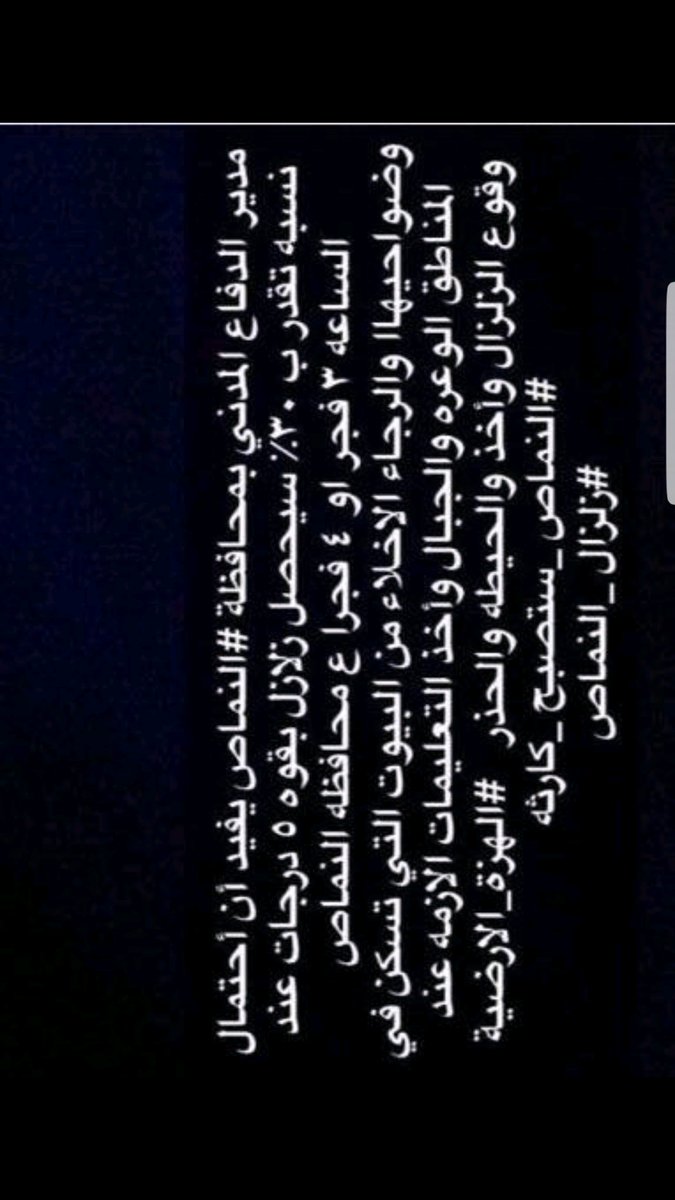 مدير الدفاع المدني بمحافظة #النماص يفيد أن أحتمال
نسبه تقدر ب ٣٠٪ سيحصل زلازل بقوه ٥ درجات عند
الساعه ٣ فجر او ٤ فجرا ع محافظه النماص
وضواحيهاا والرجاء الاخلاء من البيوت التي تسكن في
المناطق الوعره والجبال وأخذ التعليمات الازمه عند
وقوع الزلزال وأخذ والحيطه والحذر #الهزة_الارضية
#النماص_ستصبح_كارثه
#زلزال_النماص